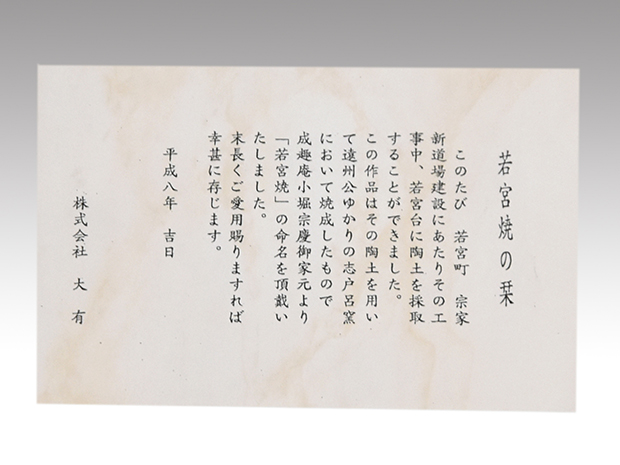 若宮焼の栞
このたび　若宮町　宗家
新道場建設にあたりその工
事中、若宮台に陶土を採取
することができました。
この作品はその陶土を用い
て遠州公ゆかりの志戸呂窯
において焼成したもので
成趣庵小堀宗慶御家元より
「若宮焼」の命名を頂戴い
たしました。
末長くご愛用賜りますれば
幸甚に存じます。
平成八年　吉日
株式会社　大有